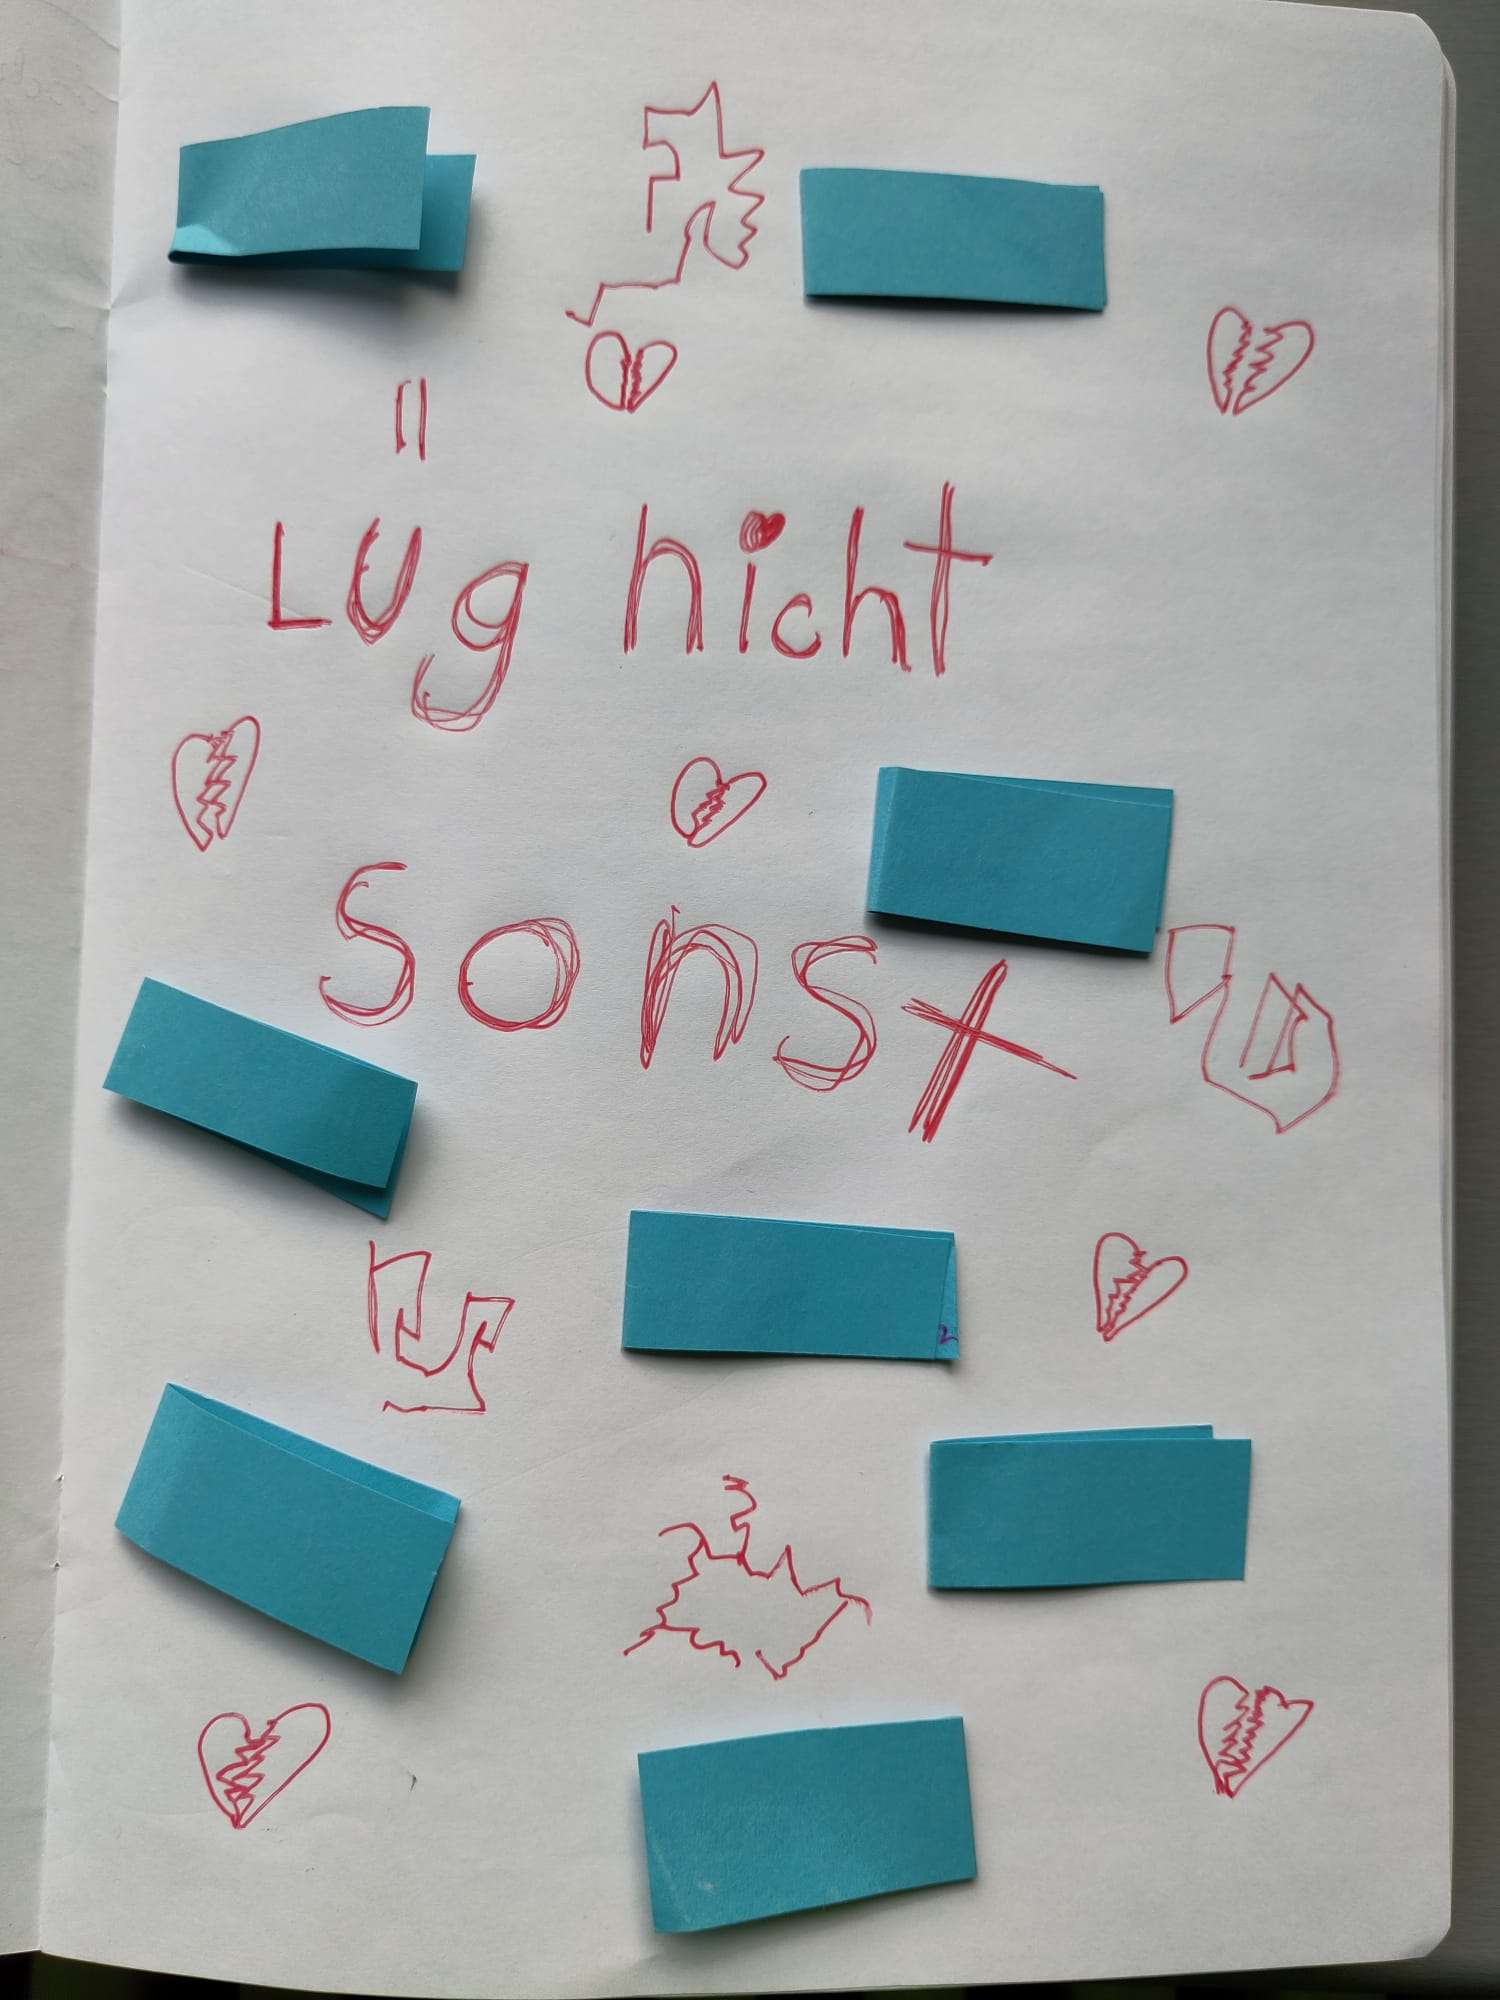 Lüg nicht
Sonst
2